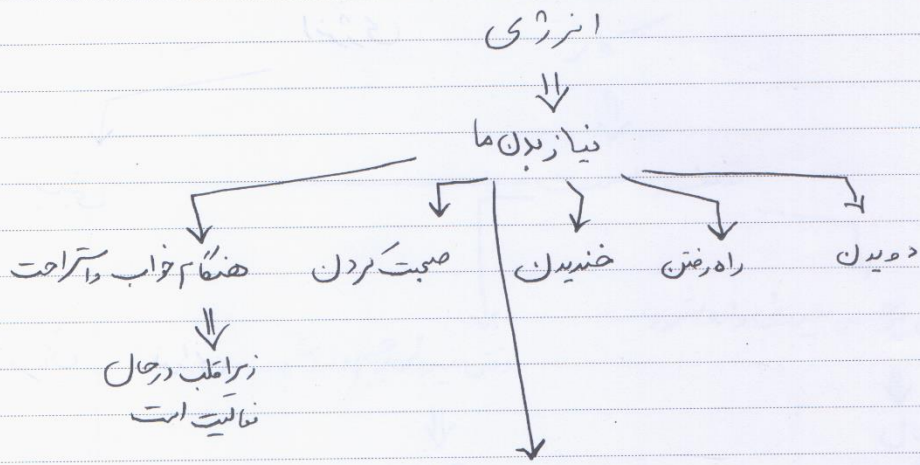 انرژی
نیاز بدن ما
دویدن راه رفتن خندیدن صحبت کردن هنگام خواب و استراحت
زیرا قلب در حال
فعالیت است